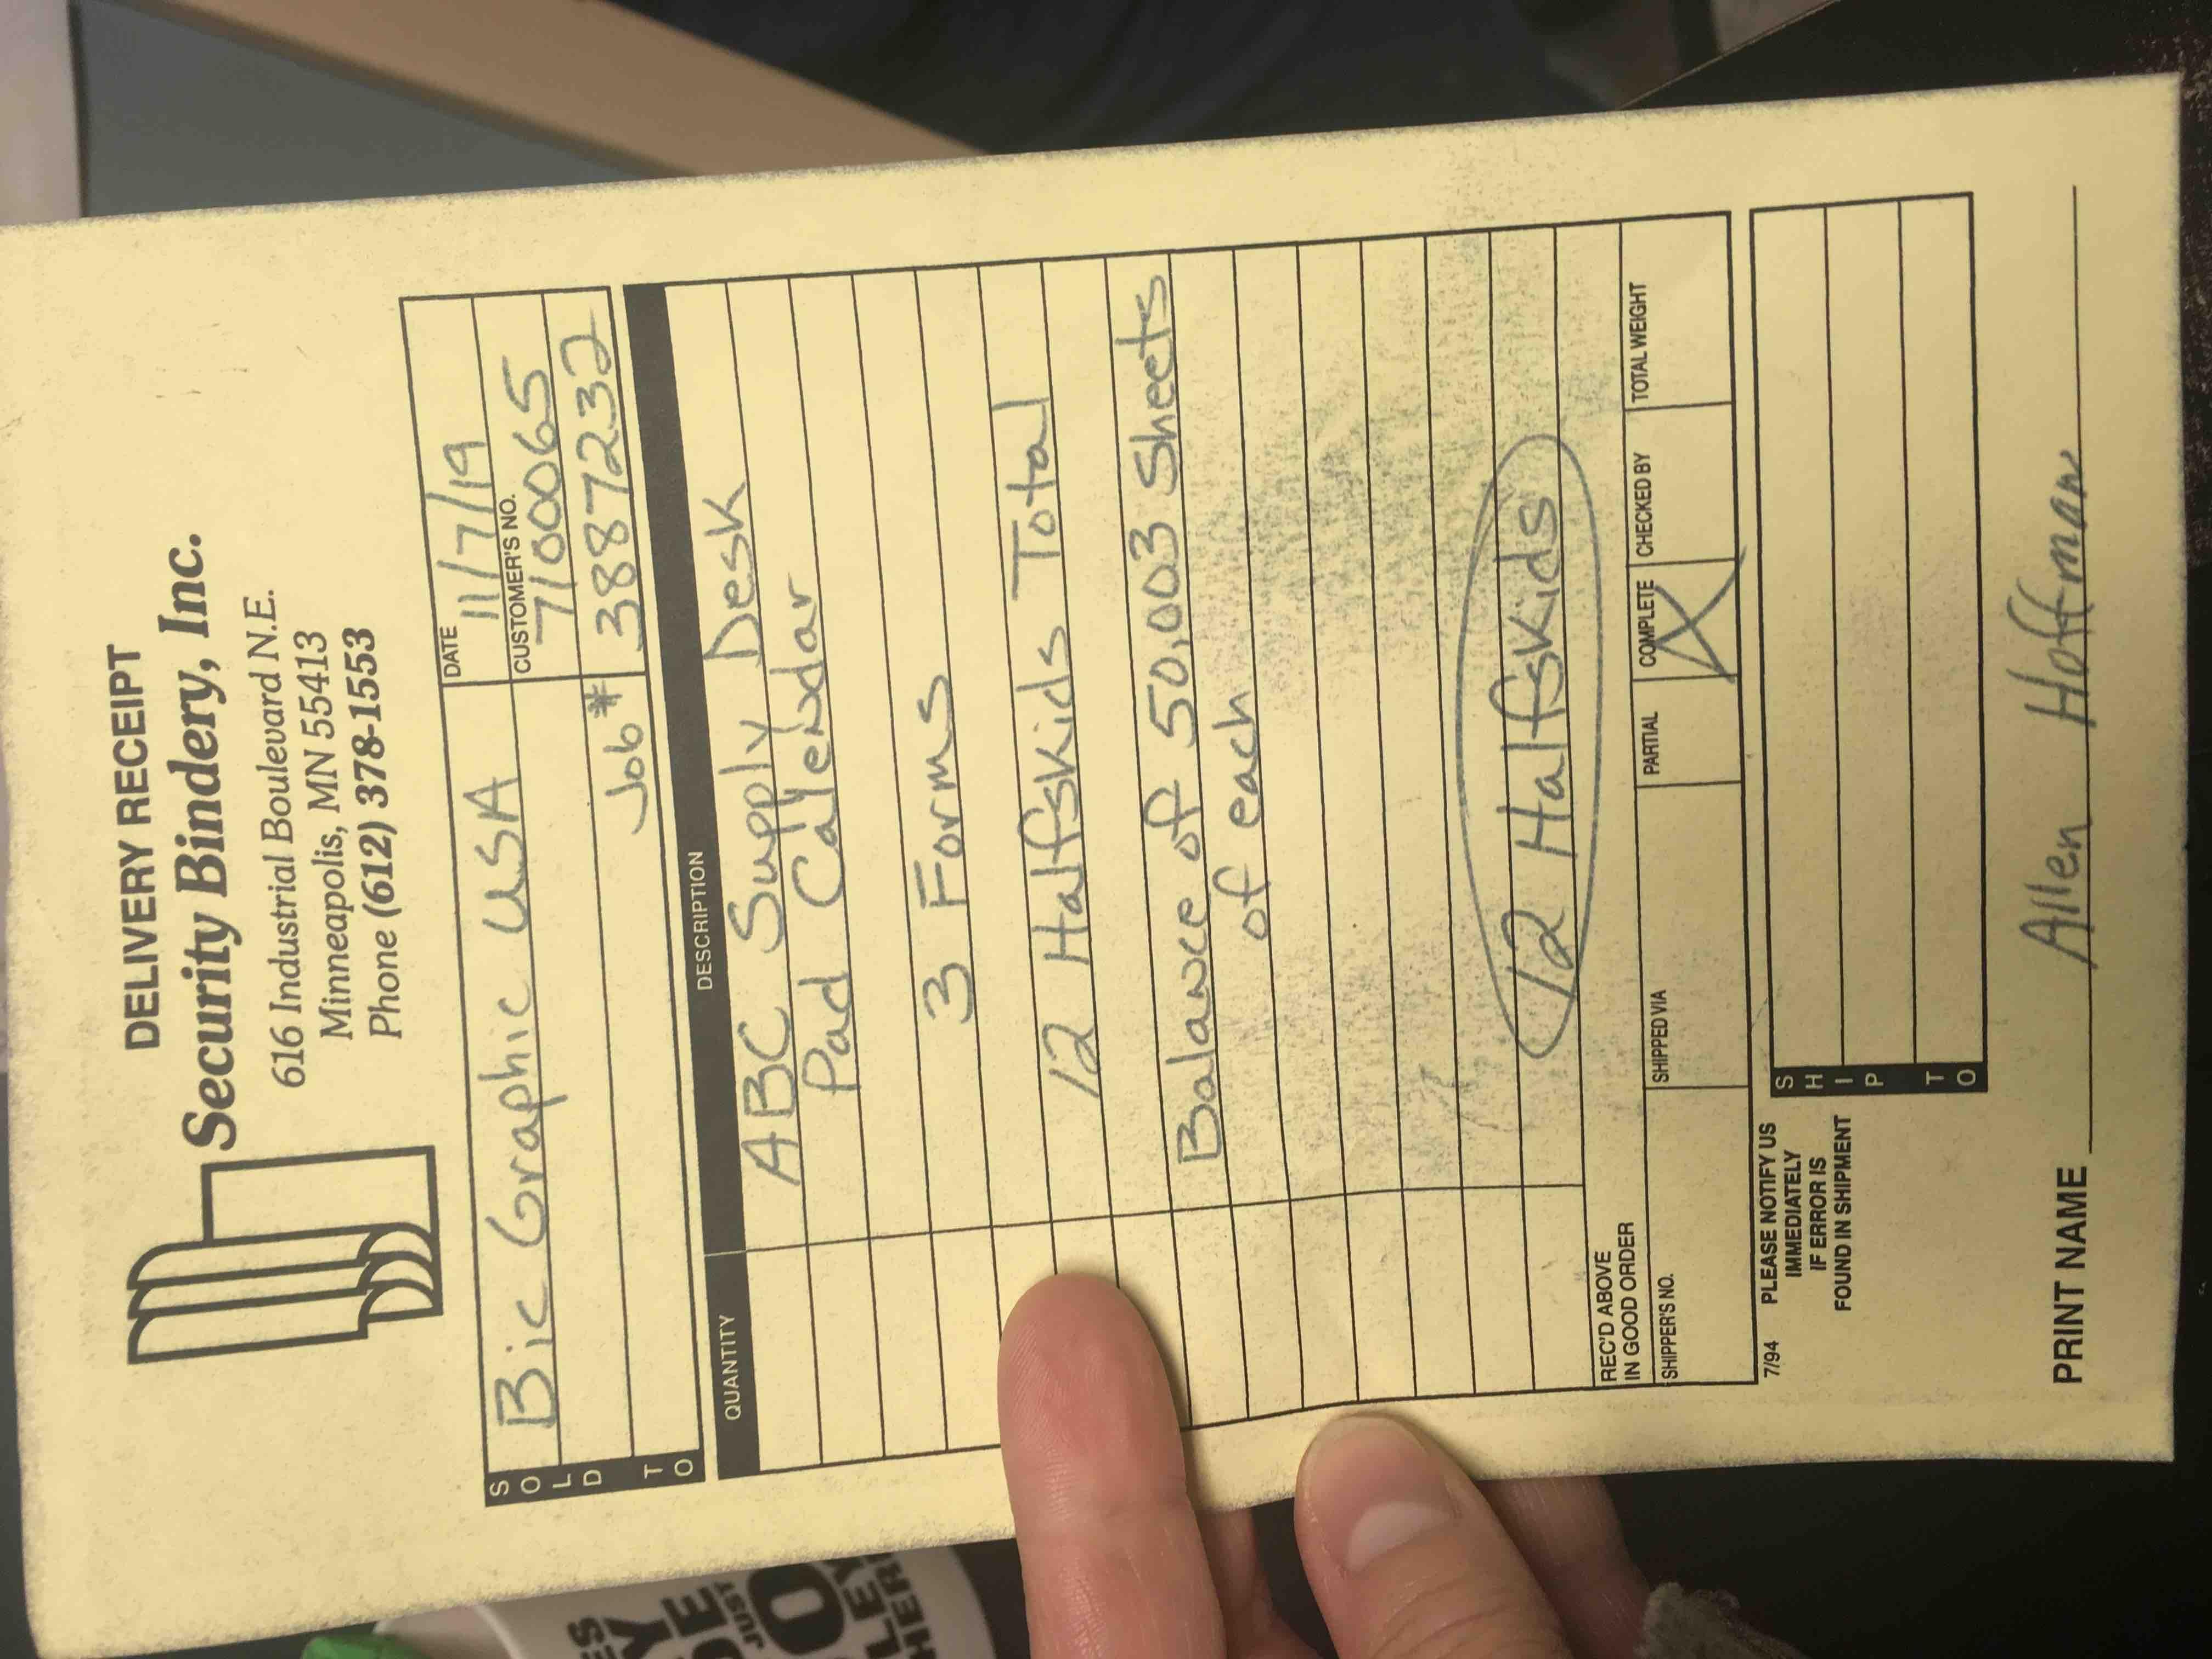 DELIVERY RECEIPT
Security Bindery, Inc.
616 Industrial Boulevard N.E.
Minneapolis, MN 55413
Phone (612) 378-1553
SOLD TO
Bic Graphic USA
DATE 11/7/19
CUSTOMER'S NO.
7100065
Job # 3887232
QUANTITY DESCRIPTION
ABC Supply Desk
Pad Calendar
3 Forms
12 Halfskids Total
Balance of 50,003 Sheets
of each
12 Halfskids
REC'D ABOVE
IN GOOD ORDER
SHIPPER'S NO. SHIPPED VIA PARTIAL COMPLETE CHECKED BY TOTAL WEIGHT
X
7/94 PLEASE NOTIFY US
IMMEDIATELY
IF ERROR IS
FOUND IN SHIPMENT
SHIP TO
PRINT NAME Allen Hoffman
JUST